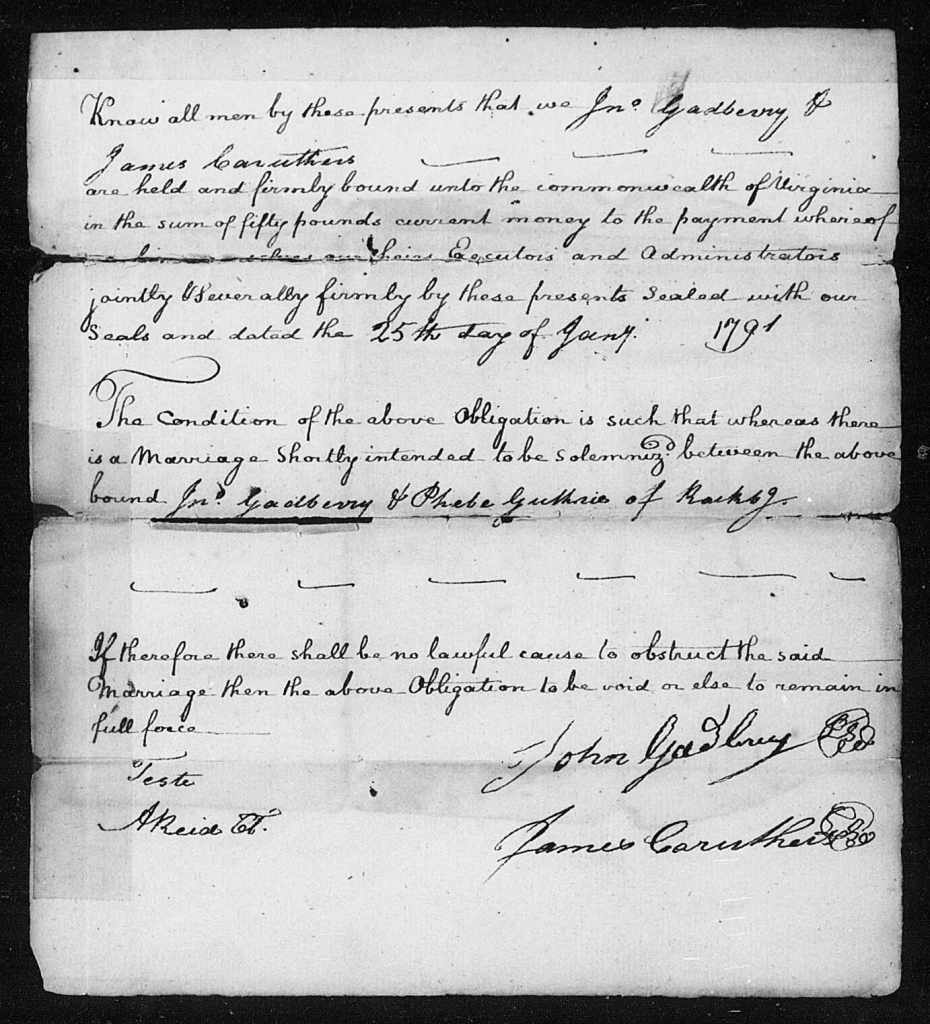 Know all men by these presents that we Jno. Gadberry &
James Caruthers
are held and firmly bound unto the commonwealth of Virginia
in the sum of fifty pounds current money to the payment whereof
our heirs Executors and Administrators
jointly & Severally firmly by these presents Sealed with our
Seals and dated the 25th day of Jany. 1791
The Condition of the above Obligation is such that whereas there
is a Marriage Shortly intended to be Solemnizd. between the above
bound Jno. Gadberry & Phebe Guthrie of Rockbg.
If therefore there shall be no lawful cause to obstruct the said
Marriage then the above Obligation to be void or else to remain in
full force
John Gadbery
Teste
A Reid Ct.
James Caruthers